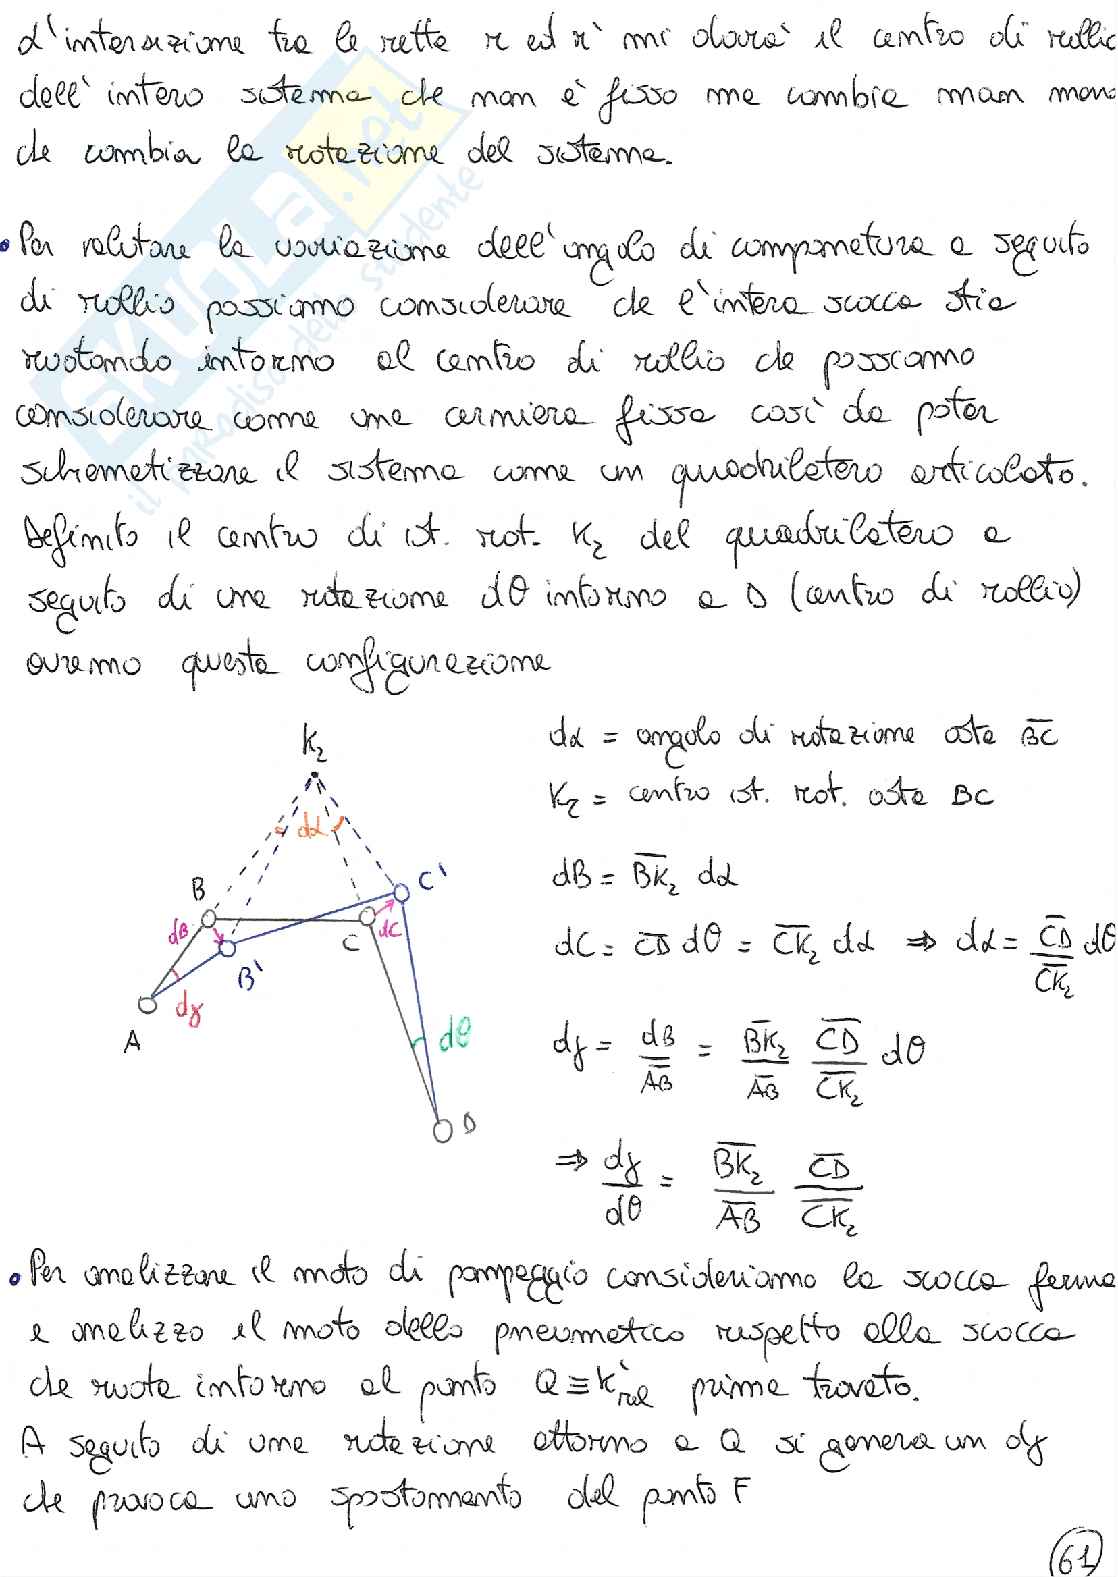 L'intersezione tra le rette r ed r' mi darà il centro di rollio
dell'intero sistema che non è fisso ma cambia man mano
che cambia la rotazione del sistema.
• Per valutare la variazione dell'angolo di campanatura a seguito
di rollio possiamo considerare che l'intera scocca stia
ruotando intorno al centro di rollio che possiamo
considerare come una cerniera fissa così da poter
schematizzare il sistema come un quadrilatero articolato.
Definito il centro di ist. rot. K₂ del quadrilatero a
seguito di una rotazione dθ intorno a D (centro di rollio)
avremo questa configurazione
K₂
dα
B
C'
dB
C
dC
B'
A
dγ
dθ
D
dα = angolo di rotazione asta B̅C̅
K₂ = centro ist. rot. asta BC
dB = B̅K̅₂ dα
dC = C̅D̅ dθ = C̅K̅₂ dα ⇒ dα = C̅D̅/C̅K̅₂ dθ
dγ = dB/A̅B̅ = B̅K̅₂/A̅B̅ C̅D̅/C̅K̅₂ dθ
⇒ dγ/dθ = B̅K̅₂/A̅B̅ C̅D̅/C̅K̅₂
• Per analizzare il moto di pompeggio consideriamo la scocca ferma
e analizzo il moto dello pneumatico rispetto alla scocca
che ruota intorno al punto Q ≡ K'rel prima trovato.
A seguito di una rotazione attorno a Q si genera un dγ
che provoca uno spostamento del punto F
61
SKUOLA.net
il paradiso dello studente